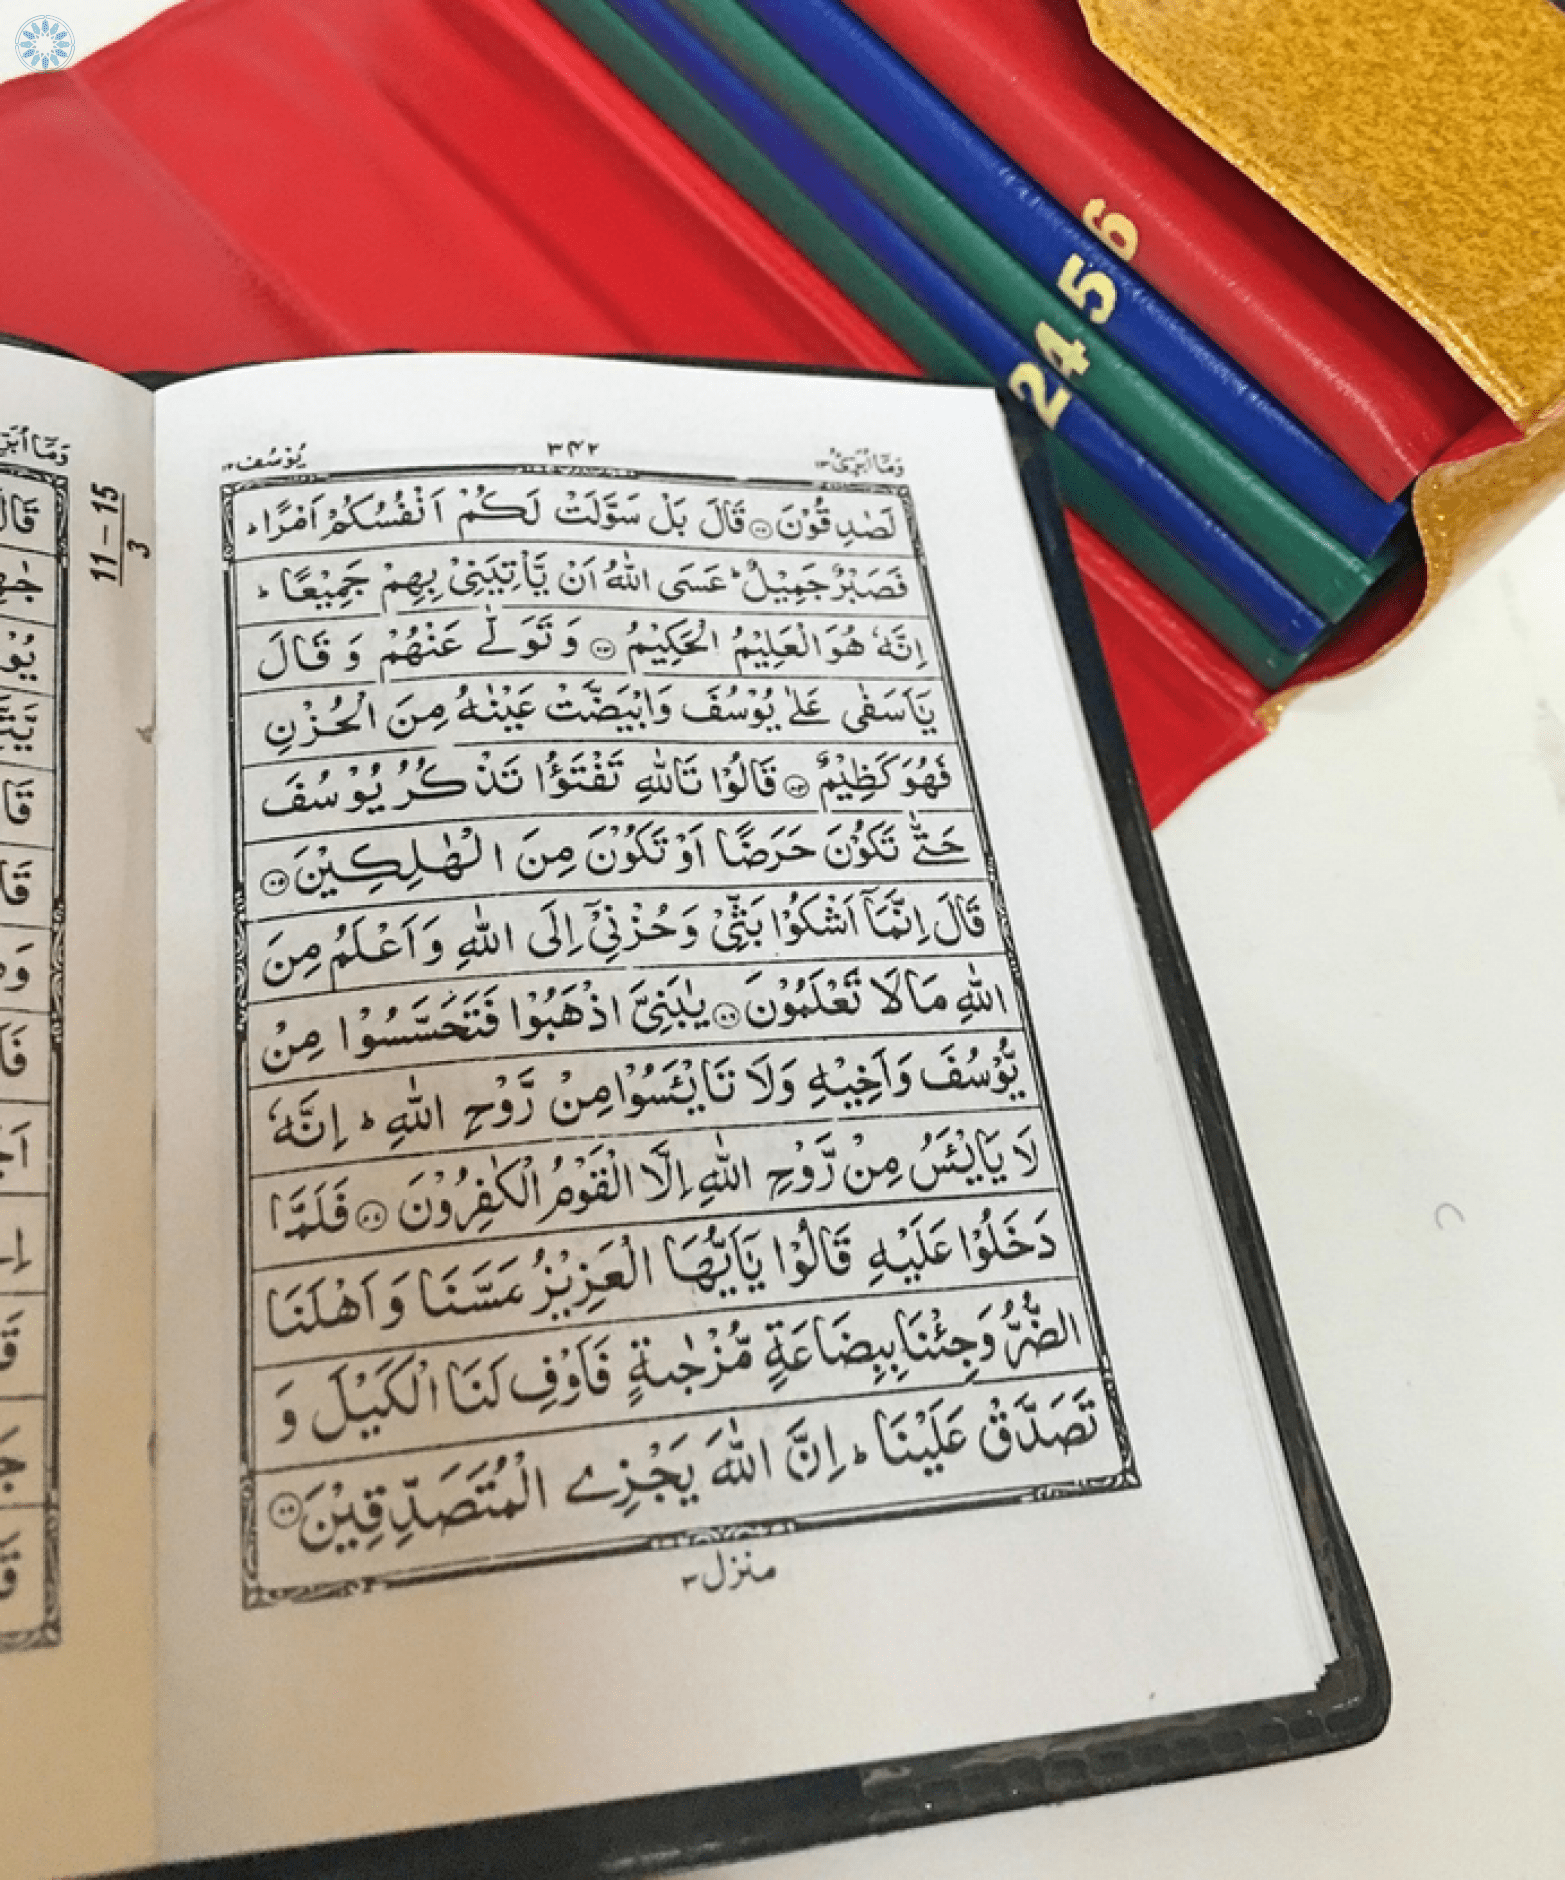 وَمَآ اُبَرِّئُ ١٣
٣٤٢
يُوْسُف ١٢
لَصٰدِقُوْنَ ۝ قَالَ بَلْ سَوَّلَتْ لَكُمْ اَنْفُسُكُمْ اَمْرًا ؕ
فَصَبْرٌ جَمِيْلٌ ؕ عَسَى اللّٰهُ اَنْ يَّاْتِيَنِيْ بِهِمْ جَمِيْعًا ؕ
اِنَّهٗ هُوَ الْعَلِيْمُ الْحَكِيْمُ ۝ وَ تَوَلّٰى عَنْهُمْ وَ قَالَ
يٰۤاَسَفٰى عَلٰى يُوْسُفَ وَابْيَضَّتْ عَيْنٰهُ مِنَ الْحُزْنِ
فَهُوَ كَظِيْمٌ ۝ قَالُوْا تَاللّٰهِ تَفْتَؤُا تَذْكُرُ يُوْسُفَ
حَتّٰى تَكُوْنَ حَرَضًا اَوْ تَكُوْنَ مِنَ الْهٰلِكِيْنَ ۝
قَالَ اِنَّمَاۤ اَشْكُوْا بَثِّيْ وَ حُزْنِيْۤ اِلَى اللّٰهِ وَ اَعْلَمُ مِنَ
اللّٰهِ مَا لَا تَعْلَمُوْنَ ۝ يٰبَنِيَّ اذْهَبُوْا فَتَحَسَّسُوْا مِنْ
يُّوْسُفَ وَ اَخِيْهِ وَ لَا تَايْـَٔسُوْا مِنْ رَّوْحِ اللّٰهِ ؕ اِنَّهٗ
لَا يَايْـَٔسُ مِنْ رَّوْحِ اللّٰهِ اِلَّا الْقَوْمُ الْكٰفِرُوْنَ ۝ فَلَمَّا
دَخَلُوْا عَلَيْهِ قَالُوْا يٰۤاَيُّهَا الْعَزِيْزُ مَسَّنَا وَ اَهْلَنَا
الضُّرُّ وَ جِئْنَا بِبِضَاعَةٍ مُّزْجٰىةٍ فَاَوْفِ لَنَا الْكَيْلَ وَ
تَصَدَّقْ عَلَيْنَا ؕ اِنَّ اللّٰهَ يَجْزِي الْمُتَصَدِّقِيْنَ ۝
منزل ٣
11 – 15
3
2
4
5
6